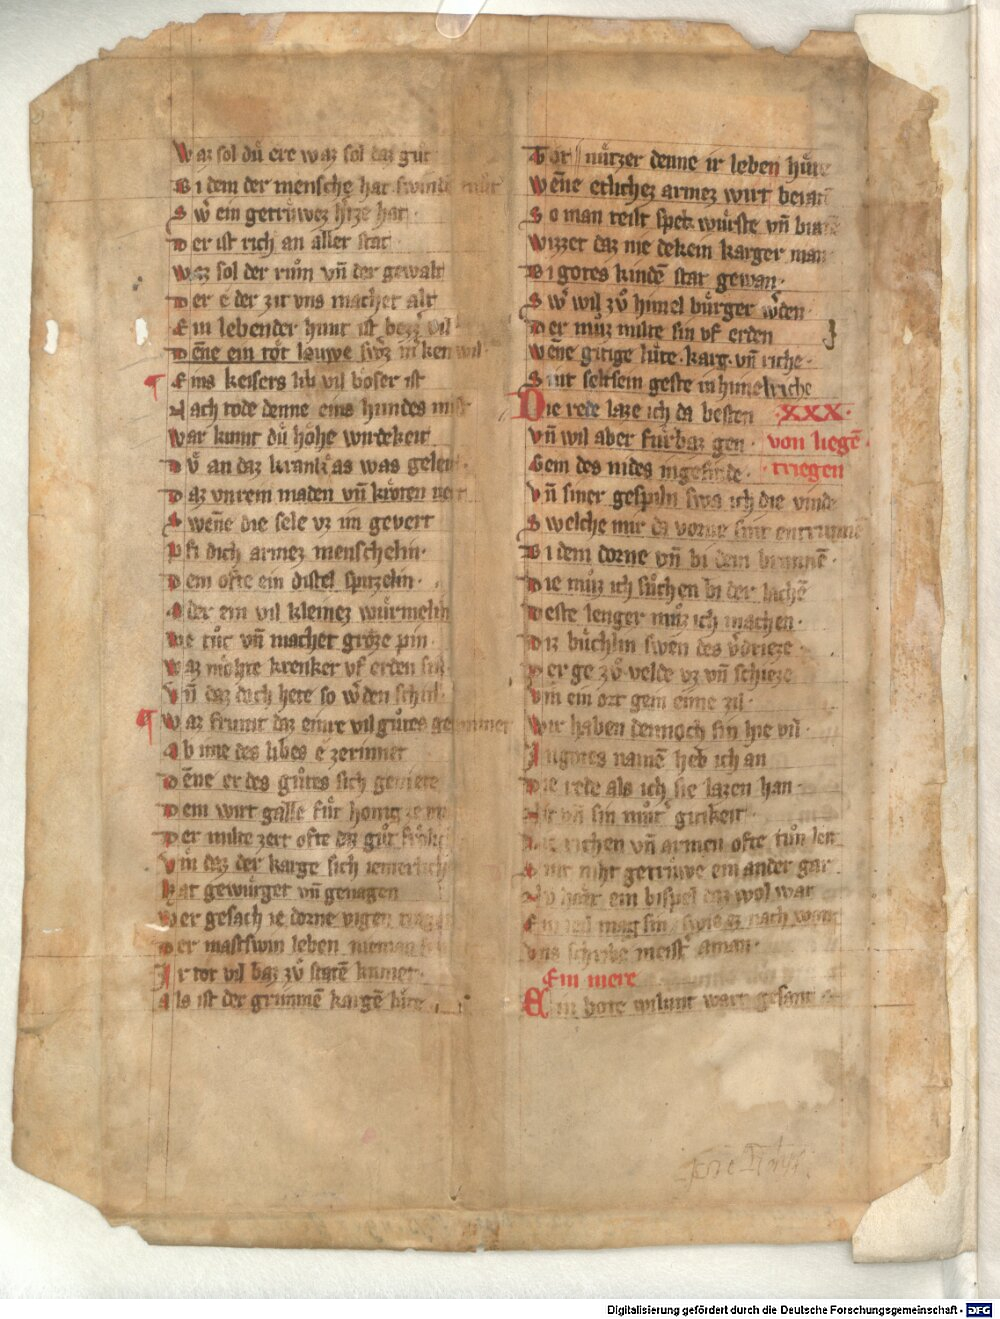 Waz sol dů ere waz sol daz gůt
Bi dem der mensche hat swinde
Swͤ ein getruwez hͤtze hat
Der ist rich an aller stat
Waz sol der rům vn̄ der gewalt
Der e der zit vns machet alt
Ein lebender hunt ist bezzͤ vil
Dēne ein tot lauwe swͦz in ken wil
Eins keisers lib vil böser ist
Nach tode denne eins hundes mist
War kumt dů höhe wirdekeit
Dů an daz krank as was geleit
Daz vnreın maden vn̄ kroten
Swēne die sele vz im gevert
Vfi dich armez menschelin
Dem ofte ein distel spitzelin
Oder ein vil kleinez wůrmelin
We tůt vn̄ machet groze pin
Waz mohte krenker vf erden sin
Vn̄ daz doch hete so wͤden schin
Waz frumt daz eime vil gůtes
Ab ime des libes e zerinnet
Dēne er des gůtes sich geniete
Dem wirt galle fůr honig
Der milte zert ofte daz gůt
Vm daz der karge sich iemerlich
Hat gewůrget vn̄ genagen
Wer gesach ie dorne vigen tragen
Der mastswin leben nieman
Ir tot vil baz zů statē kumet
Als ist der grimmē kargē lůte
Tot nůtzer denne ir leben hůte
Wēne etlichez armez wirt beraten
So man teilt spek wůrste vn̄ braten
Wizzet daz nie dekein karger man
Bi gotes kindē stat gewan
Swͤ wil zů himel bůrger wͤden
Der můz milte sin vf erden
Wēne gitige lůte karg vn̄ riche
Sint seltsein geste in himelriche
Die rede laze ich da besten XXX
Vn̄ wil aber fůrbaz gen von liegē
Gein des nides ingesinde triegen
Vn̄ siner gespiln swa ich die vinde
Swelche mir da vorne sint entrunnē
Bi dem dorne vn̄ bi dem brunnē
Die můz ich sůchen bi der lachē
Deste lenger můz ich machen
Diz bůchlin swen des vͤdrieze
Der ge zů velde vz vn̄ schieze
Vm ein ort gein eime zil
Wir haben dennoch hie vil
In gotes namē heb ich an
Die rede als ich sie lazen han
Nit vn̄ sin můt gitikeit
Die richen vn̄ armen ofte tůn leit
Mit niht getruwe ein ander gar
Nu hört ein bispel daz wol war
Ein teil mag sin swie ez nach wan
Vns schribe meistͤ aman
Ein mere
Ein bote wilunt wart gesant
Digitalisierung gefördert durch die Deutsche Forschungsgemeinschaft - DFG